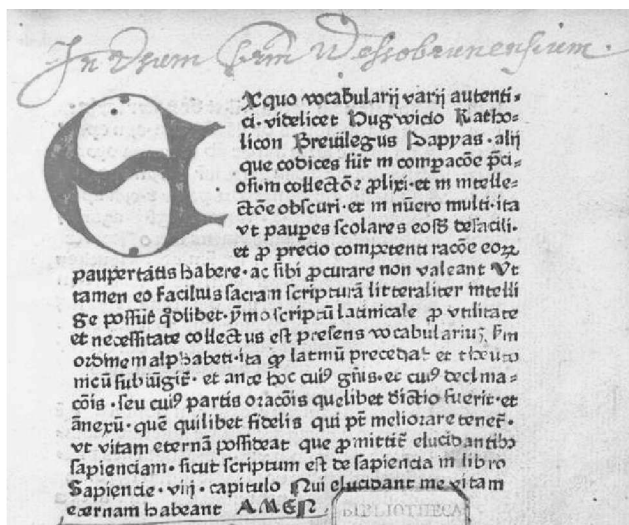 In Usum Frm Wessobrunensium.
Ex quo vocabularij varij autenti⸗
ci. videlicet Hugwicio Katho⸗
licon Breuilegus Papyas. alij
que codices sūt in comparacōe p̄ci
osi. in collectōe ꝓlixi. et in intelle⸗
ctōe obscuri. et in nūero multi. ita
vt pauꝑes scolares eosd̄ de facili.
et ꝓ precio competenti racōe eoꝝ
paupertatis habere. ac sibi ꝓcurare non valeant Vt
tamen eo facilius sacram scripturā litteraliter intelli
ge possūt q̄dlibet. ȳmo scriptū latinicale ꝓ vtilitate
et necessitate collectus est presens vocabularius fm
ordinem alphabeti. ita ꝙ latinū precedat et theuto
nicū subiūgit᷑. et ante hoc cuiꝰ gn̄is. et cuiꝰ declina⸗
cōis. seu cuiꝰ partis oracōis quelibet dictio fuerit. et
ānexū. quē quilibet fidelis qui pt̄ meliorare tenet᷑.
vt vitam eternā possideat que ꝓmittit᷑ elucidantibꝰ
sapienciam. sicut scriptum est de sapiencia in libro
Sapiencie. viij. capitulo Qui elucidant me vitam
eternam habeant AMEN
BIBLIOTHECA